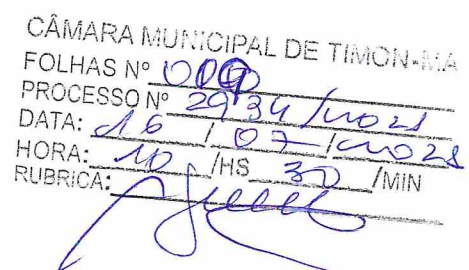 CÂMARA MUNICIPAL DE TIMON-MA
FOLHAS Nº
PROCESSO Nº 2934/2021
DATA: 16 / 07 / 2021
HORA: 10 /HS 30 /MIN
RUBRICA: